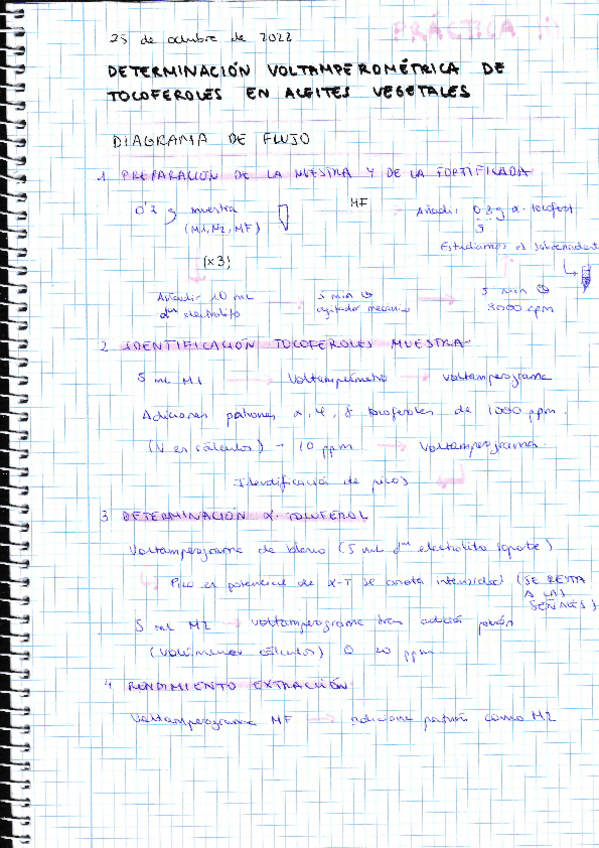 25 de octubre de 2022
PRÁCTICA
DETERMINACIÓN VOLTAMPEROMÉTRICA DE
TOCOFEROLES EN ACEITES VEGETALES
DIAGRAMA DE FLUJO
1 PREPARACIÓN DE LA MUESTRA Y DE LA FORTIFICADA
0'2 g muestra
(M1, M2, MF)
(x3)
MF
Añadir 0,3 g α-tocoferol
Estudiamos el sobrenadante
Añadir 10 mL
dôn electrolito
5 min
agitador mecánico
5 min
3000 rpm
2 IDENTIFICACIÓN TOCOFEROLES MUESTRA
5 mL M1 → Voltamperímetro → voltamperograma
Adiciones patrones α, δ, γ tocoferoles de 1000 ppm
(V en cálculos) - 10 ppm → Voltamperograma
Identificación de picos
3 DETERMINACIÓN α-TOCOFEROL
Voltamperograma de blanco (5 mL dôn electrolito soporte)
Pico en potencial de α-T se anota intensidad (SE RESTA
A LAS
SEÑALES).
5 mL M2 → voltamperograma tras adición patrón
(volúmenes cálculos) 0 20 ppm
4 RENDIMIENTO EXTRACCIÓN
Voltamperograma MF → adicione patrón como M2